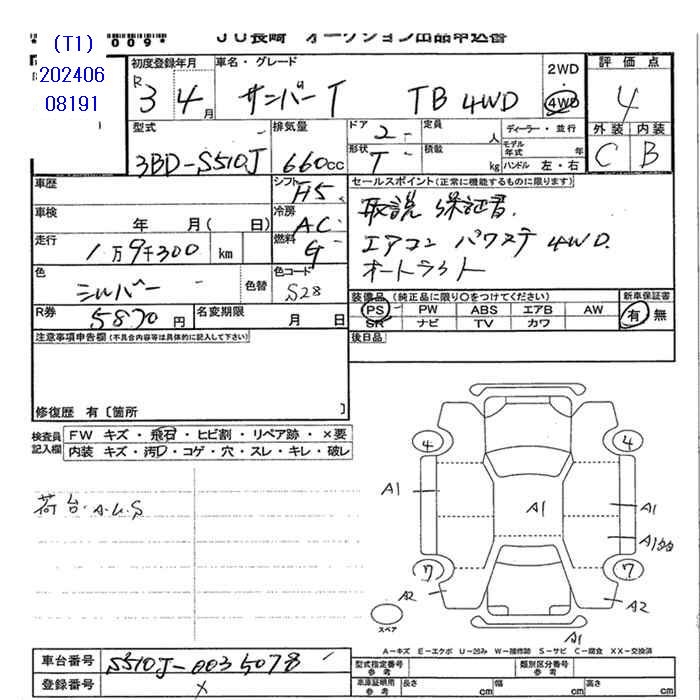 (T1)
202406
08191
009*
JU長崎 オークション出品申込書
初度登録年月 車名・グレード 2WD 評価点
R 3 4月 サンバーT TB 4WD 4WD 4
型式 排気量 ドア 2 定員 人 ディーラー・並行 外装 内装
3BD-S510J 660cc 形状 T 積載 kg モデル年式 年 ハンドル 左・右 C B
車歴 シフト H5 セールスポイント(正常に機能するものに限ります)
車検 年 月( 日) 冷房 AC 取説 保証書.
走行 1万9千300 km 燃料 G エアコン パワステ 4WD.
色 シルバー 色替 色コード S28 オートライト
R券 5870円 名変期限 月 日 装備品 (純正品に限り○をつけてください) 新車保証書
PS PW ABS エアB AW 有 無
SR ナビ TV カワ
注意事項申告欄(不具合内容等は具体的に記入して下さい) 後日品
修復歴 有〔箇所 〕
検査員 FW キズ・飛石・ヒビ割・リペア跡・×要
記入欄 内装 キズ・汚D・コゲ・穴・スレ・キレ・破レ
荷台・A.U.S
4 4
A1 A1 A1
A1
7 7
A2 A2
スペア
A1
A-キズ E-エクボ U-凹み W-補修跡 S-サビ C-腐食 XX-交換済
車台番号 S510J-0035078 型式指定番号 参考 類別区分番号 参考
登録番号 × 車庫証明用 参考 長さ cm 幅 cm 高さ cm